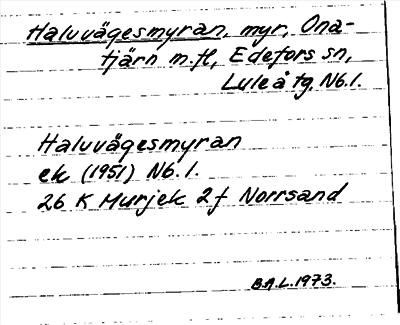 Haluvägesmyran, myr, Ona-
tjärn m.fl, Edefors sn,
Luleå tg, Nb.l.
Haluvägesmyran
ek (1951) Nb.l.
26 K Murjek 2f Norrsand
B.A.L. 1973.